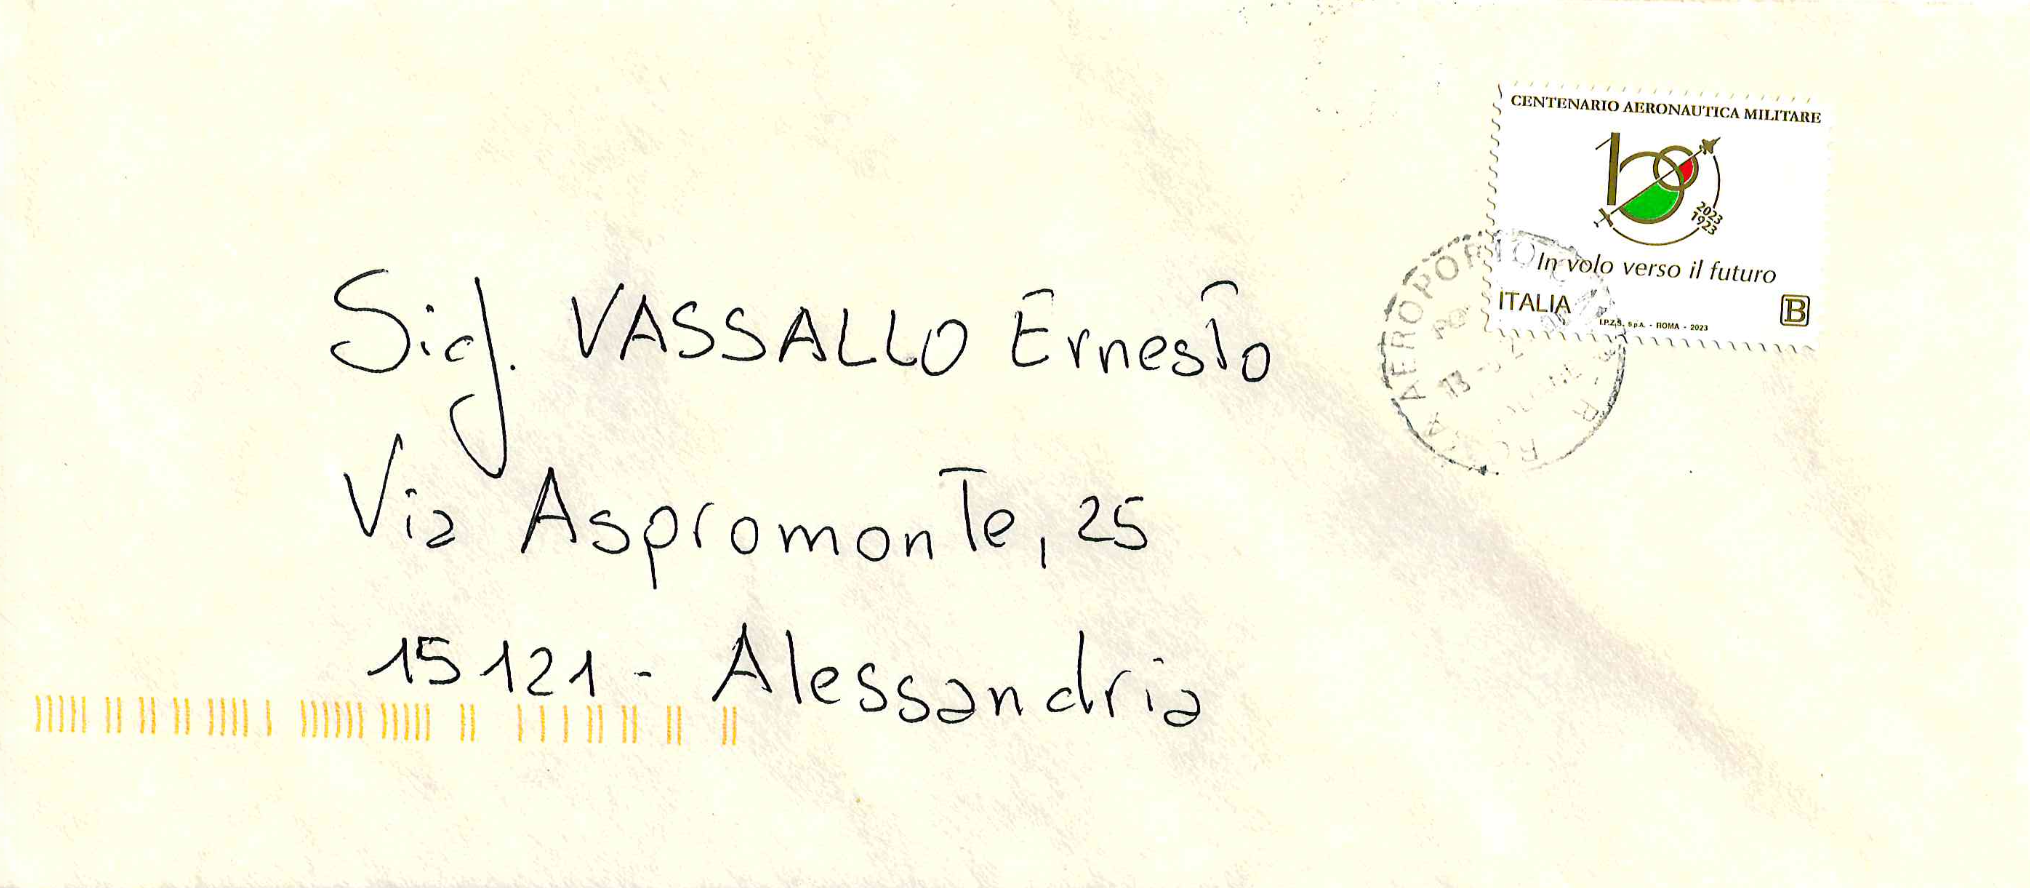 CENTENARIO AERONAUTICA MILITARE
100
2023
1923
In volo verso il futuro
ITALIA
B
I.P.Z.S. S.p.A. - ROMA - 2023
AEROPORTO
Sig. VASSALLO Ernesto
Via Aspromonte, 25
15121 - Alessandria